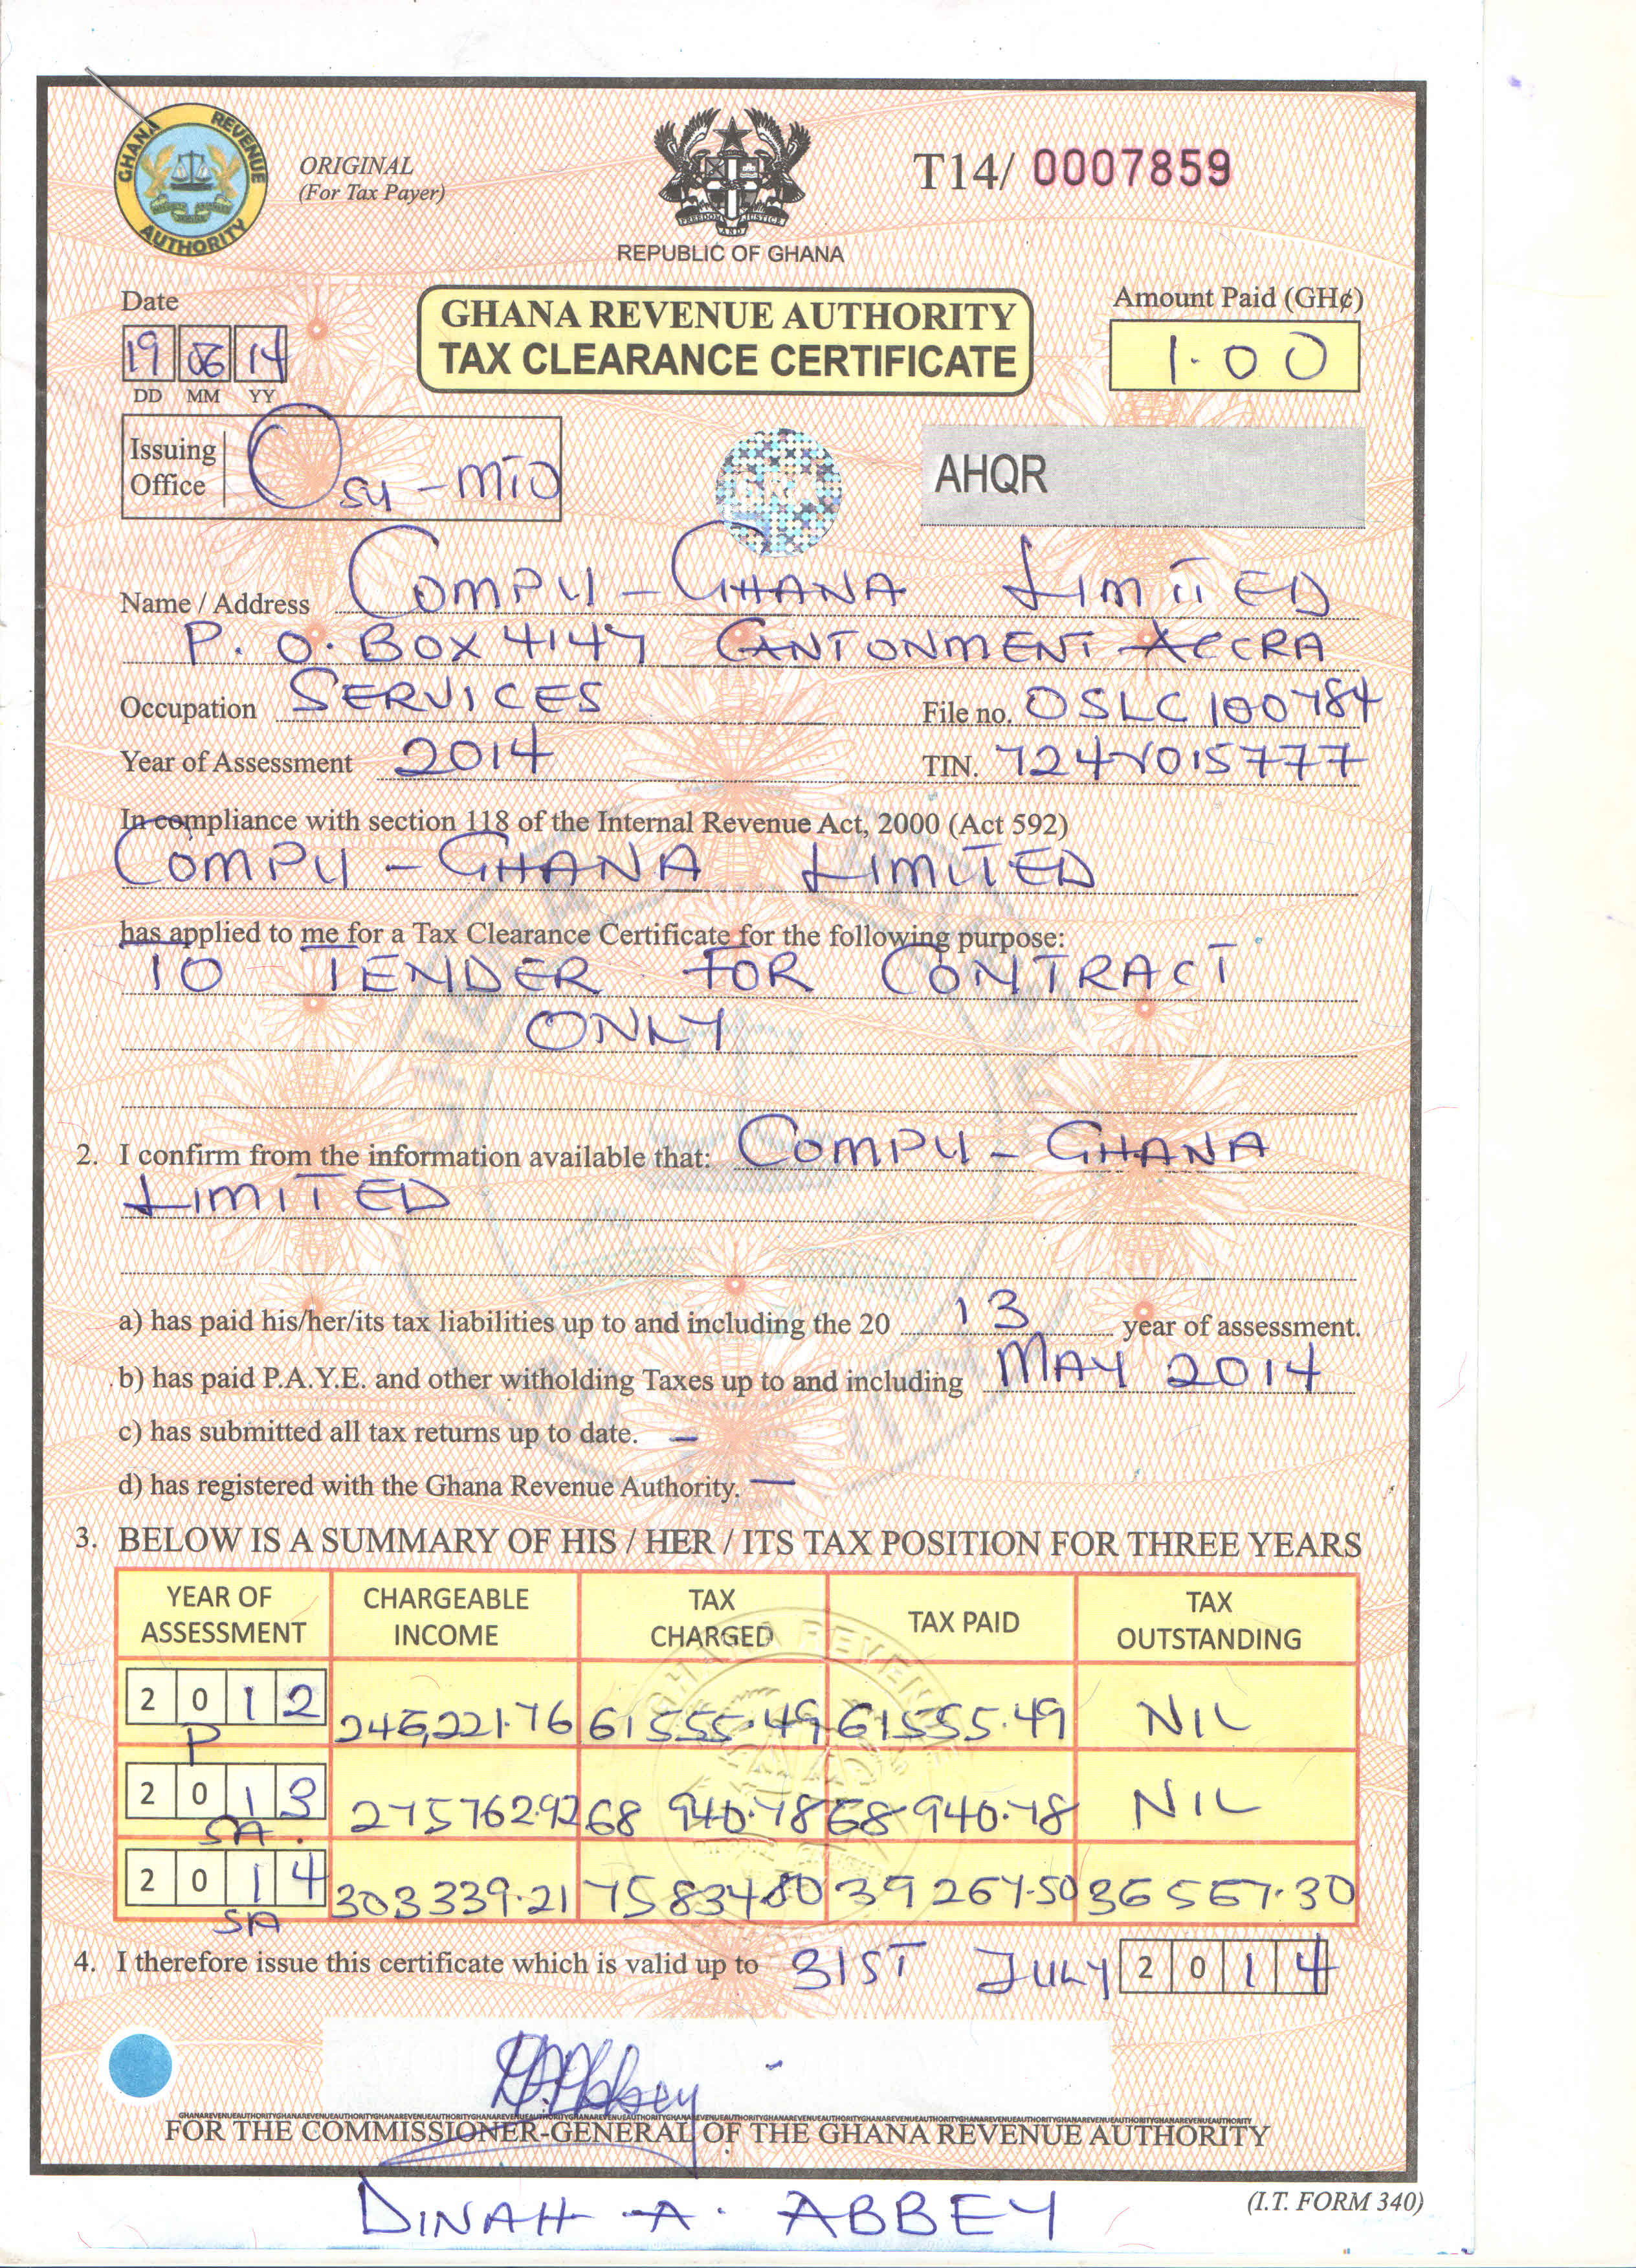 GHANA REVENUE AUTHORITY
ORIGINAL
(For Tax Payer)
FREEDOM AND JUSTICE
REPUBLIC OF GHANA
T14/ 0007859
Date
19 06 14
DD MM YY
GHANA REVENUE AUTHORITY
TAX CLEARANCE CERTIFICATE
Amount Paid (GH¢)
1.00
Issuing
Office
OSU-MTO
GRA
AHQR
Name / Address COMPU-GHANA LIMITED
P. O. BOX 4147 CANTONMENT ACCRA
Occupation SERVICES File no. OSLC100784
Year of Assessment 2014 TIN. 724V015777
In compliance with section 118 of the Internal Revenue Act, 2000 (Act 592)
COMPU-GHANA LIMITED
has applied to me for a Tax Clearance Certificate for the following purpose:
TO TENDER FOR CONTRACT
ONLY
2. I confirm from the information available that: COMPU-GHANA
LIMITED
a) has paid his/her/its tax liabilities up to and including the 20 13 year of assessment.
b) has paid P.A.Y.E. and other witholding Taxes up to and including MAY 2014
c) has submitted all tax returns up to date. –
d) has registered with the Ghana Revenue Authority. –
3. BELOW IS A SUMMARY OF HIS / HER / ITS TAX POSITION FOR THREE YEARS
YEAR OF ASSESSMENT CHARGEABLE INCOME TAX CHARGED TAX PAID TAX OUTSTANDING
2012 246,221.76 61555.49 61555.49 NIL
P
2013 275762.92 68 940.78 68 940.78 NIL
SA.
2014 303339.21 75834.80 39267.50 36567.30
SA
4. I therefore issue this certificate which is valid up to 31ST JULY 2014
FOR THE COMMISSIONER-GENERAL OF THE GHANA REVENUE AUTHORITY
(I.T. FORM 340)
DINAH A. ABBEY